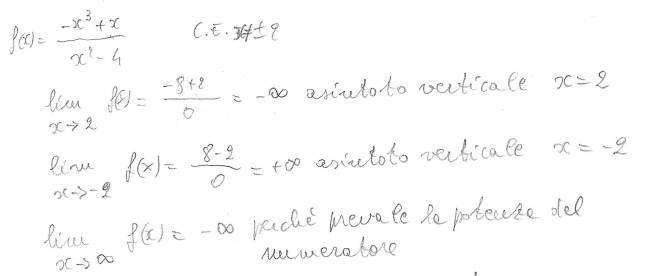 f(x) = (-x³ + x)/(x² - 4) C.E. x ≠ ±2
lim x→2 f(x) = (-8+2)/0 = -∞ asintoto verticale x = 2
lim x→-2 f(x) = (8-2)/0 = +∞ asintoto verticale x = -2
lim x→∞ f(x) = -∞ perché prevale la potenza del
numeratore